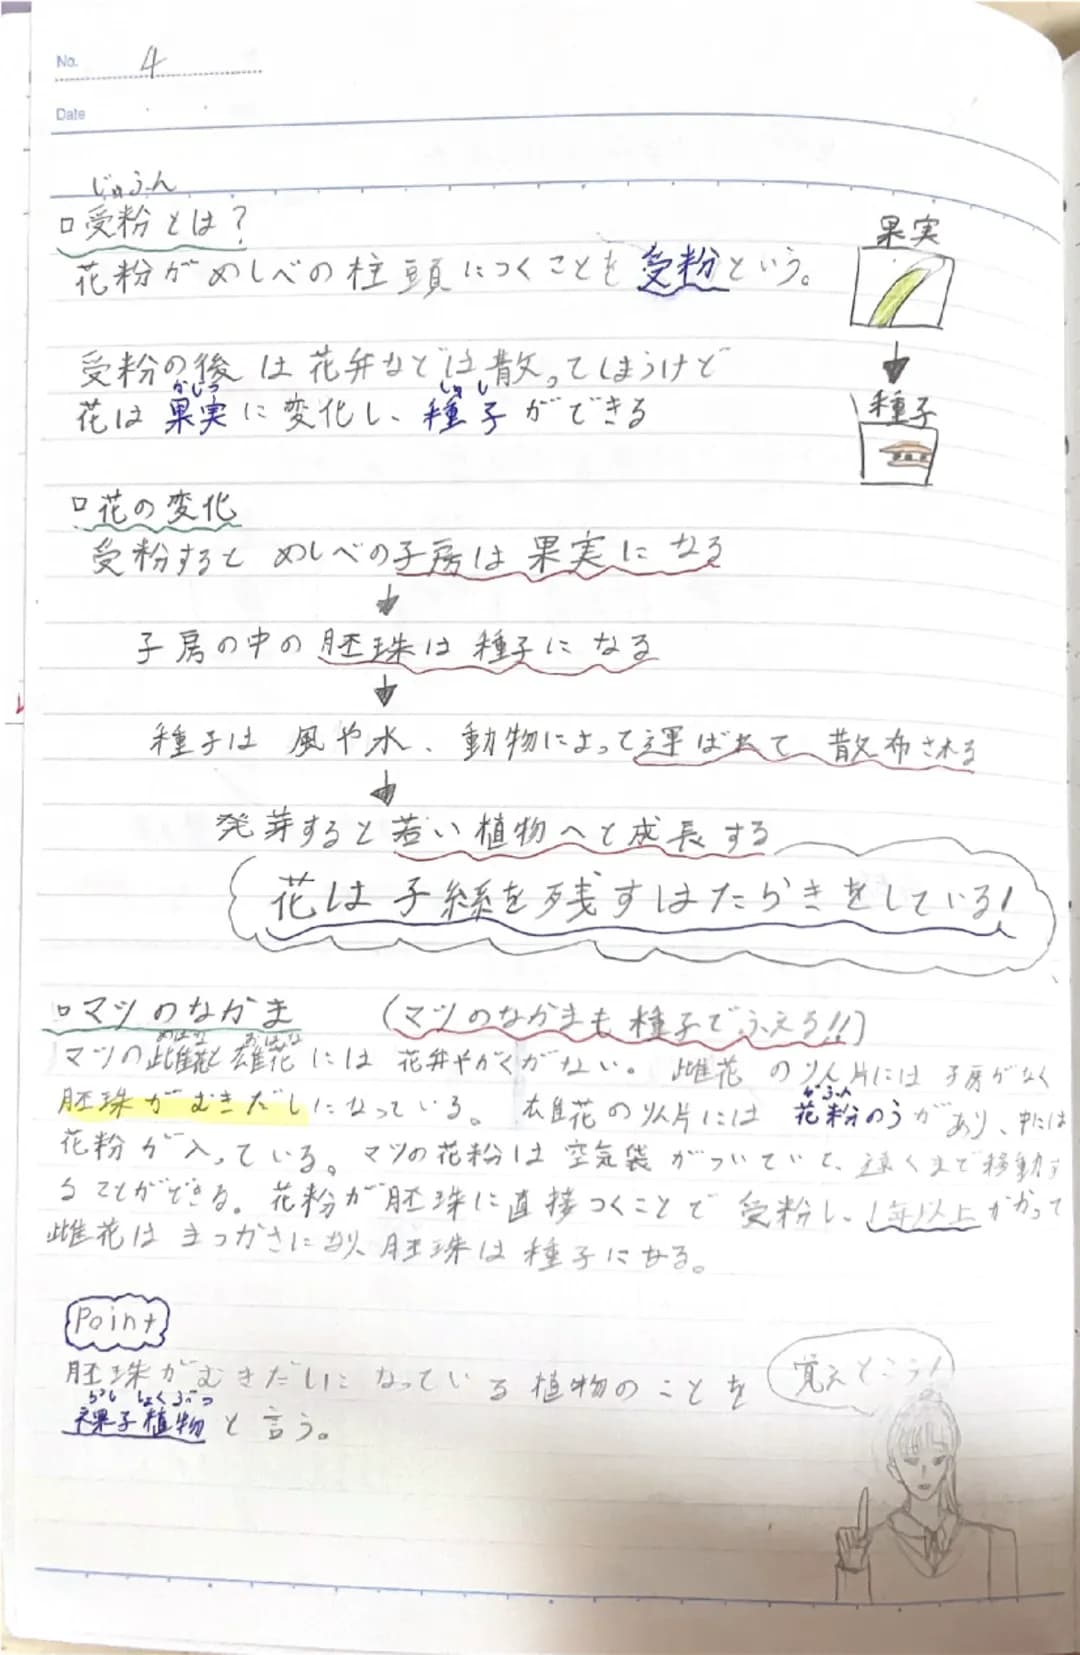 No. 4
Date
じゅふん
受粉とは?
花粉がめしべの柱頭につくことを受粉という。
果実
受粉の後は花弁などは散ってしまうけど
かじつ しゅし
花は果実に変化し、種子ができる
種子
花の変化
受粉すると めしべの子房は果実になる
子房の中の胚珠は種子になる
種子は 風や水、動物によって運ばれて 散布される
発芽すると若い植物へと成長する
花は子孫を残すはたらきをしている!
マツのなかま (マツのなかまも種子でふえる!!)
めばな おばな
マツの雌花と雄花には 花弁やがくがない。 雌花のりん片には 子房がなく
胚珠がむきだしになっている。 雄花のりん片には 花粉のうがあり、中には
かふん
花粉が入っている。マツの花粉は空気袋がついていて、遠くまで移動す
ることができる。花粉が胚珠に直接つくことで 受粉し、1年以上かかって
雌花はまつかさになり、胚珠は種子になる。
Point
胚珠がむきだしになっている植物のことを
らし しょくぶつ
裸子植物と言う。
覚えとこう!